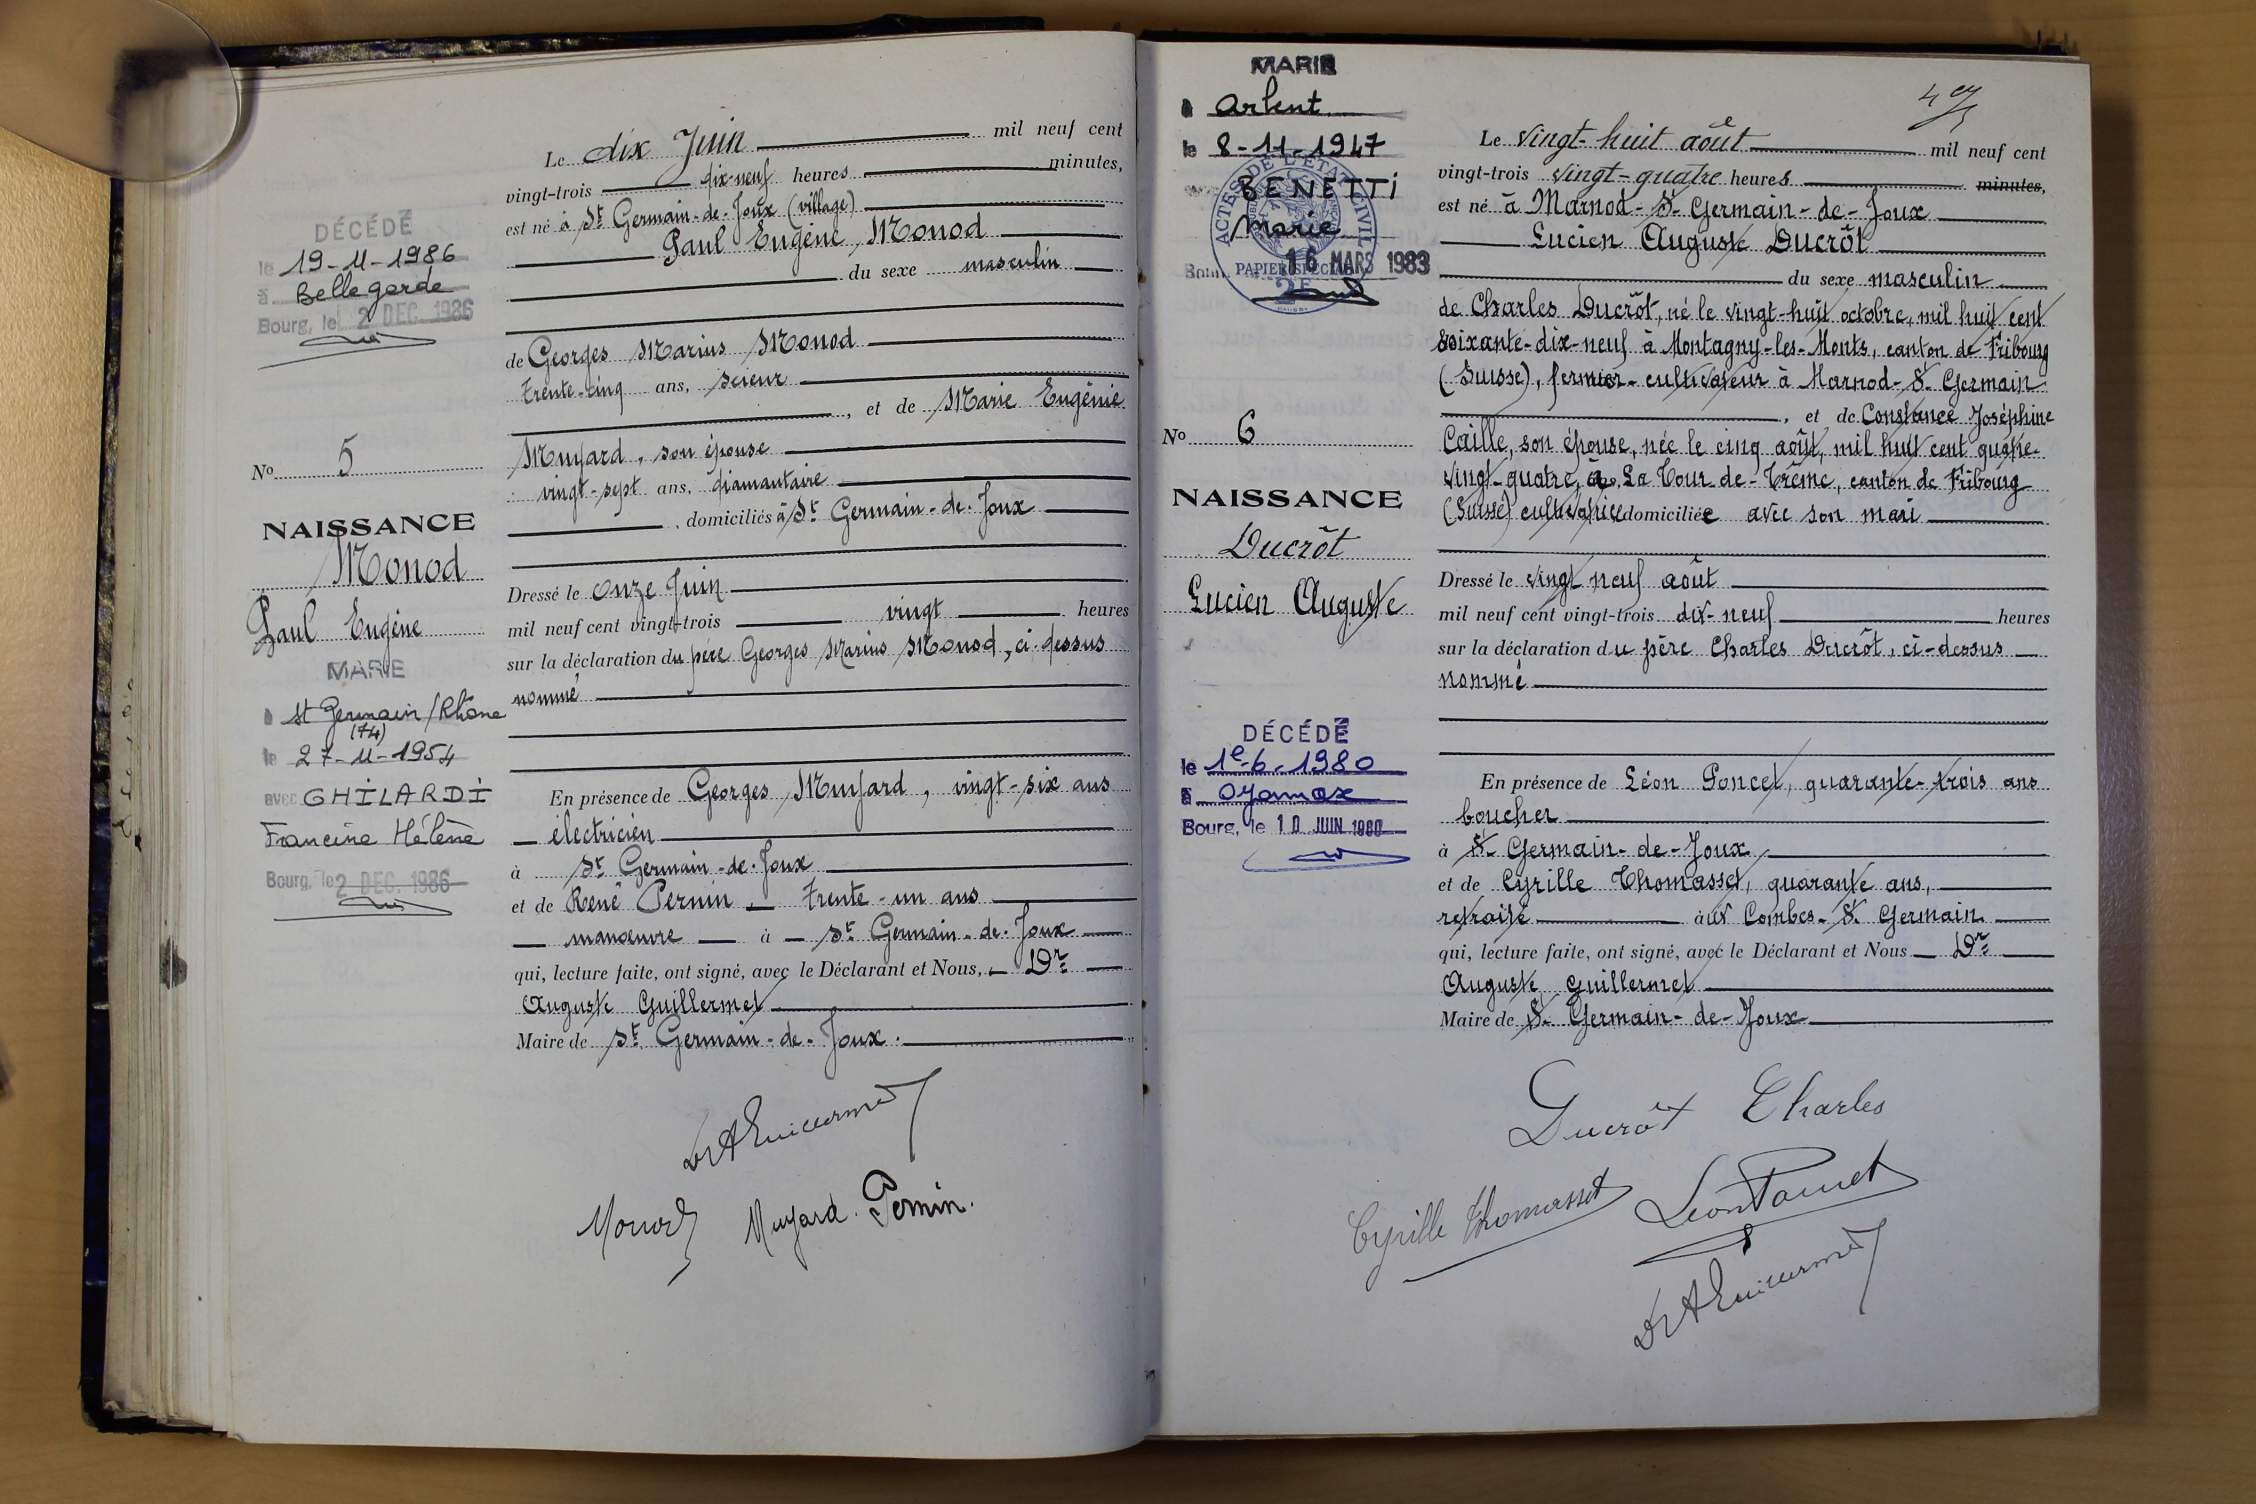 DÉCÉDÉ
le 19-11-1986
à Bellegarde
Bourg, le 2 DEC. 1986
No 5
NAISSANCE
Monod
Paul Eugène
MARIÉ
à St Germain/Rhône
(74)
le 27-11-1954
avec GHILARDI
Francine Hélène
Bourg, le 2 DEC. 1986
Le dix Juin mil neuf cent
vingt-trois dix-neuf heures minutes,
est né à St Germain-de-Joux (village)
Paul Eugène Monod
du sexe masculin
de Georges Marius Monod
trente-cinq ans, scieur
, et de Marie Eugénie
Muyard, son épouse
vingt-sept ans, diamantaire
, domiciliés à St Germain-de-Joux
Dressé le onze Juin
mil neuf cent vingt-trois vingt heures
sur la déclaration du père Georges Marius Monod, ci-dessus
nommé
En présence de Georges Muyard, vingt-six ans
électricien
à St Germain-de-Joux
et de René Pernin trente-un ans
manœuvre à St Germain-de-Joux
qui, lecture faite, ont signé, avec le Déclarant et Nous, Dr
Auguste Guillermet
Maire de St Germain-de-Joux.
Dr A Guillermet
Monod Muyard. Pernin.
MARIÉ
à Arbent
le 8-11-1947
BENETTI
Marie
ACTES DE L'ETAT CIVIL
PAPIER SPÉCIAL
2F
16 MARS 1983
No 6
NAISSANCE
Ducrôt
Lucien Auguste
DÉCÉDÉ
le 1e-6-1980
à Oyonnax
Bourg, le 10 JUIN 1980
Le vingt-huit août mil neuf cent
vingt-trois vingt-quatre heures minutes,
est né à Marnod-St Germain-de-Joux
Lucien Auguste Ducrôt
du sexe masculin
de Charles Ducrôt, né le vingt-huit octobre, mil huit cent
soixante-dix-neuf à Montagny-les-Monts, canton de Fribourg
(Suisse), fermier-cultivateur à Marnod-St Germain
, et de Constance Joséphine
Caille, son épouse, née le cinq août, mil huit cent quatre-
vingt-quatre, à La Tour-de-Trême, canton de Fribourg
(Suisse) cultivatrice domiciliée avec son mari
Dressé le vingt neuf août
mil neuf cent vingt-trois dix-neuf heures
sur la déclaration du père Charles Ducrôt, ci-dessus
nommé
En présence de Léon Poncet, quarante-trois ans
boucher
à St Germain-de-Joux
et de Cyrille Thomasset, quarante ans,
retraité aux Combes-St Germain
qui, lecture faite, ont signé, avec le Déclarant et Nous Dr
Auguste Guillermet
Maire de St Germain-de-Joux
Ducrôt Charles
Cyrille Thomasset Léon Poncet
Dr A Guillermet